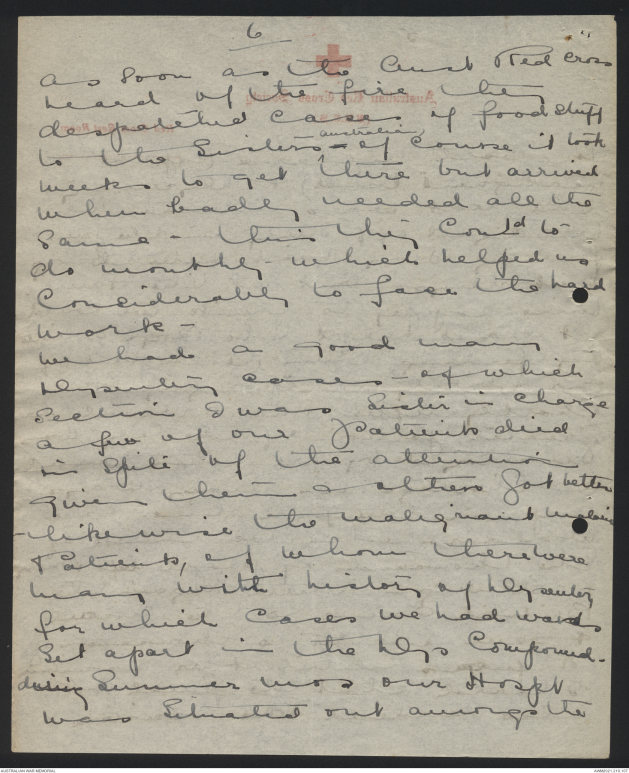 6
as soon as the Aust Red Cross
heard of the fire they
despatched cases of food stuff
to the Sisters – australian of course it took
weeks to get there but arrived
when badly needed all the
same – this they cont'd to
do monthly which helped us
considerably to face the hard
work –
We had a good many
dysentery cases – of which
section I was Sister in Charge
a few of our patients died
in spite of the attention
given them – others got better
– likewise the malignant malaria
patients, of whom there were
many with history of dysentery
for which cases we had wards
set apart in the dys Compound.
during Summer mos our Hospt
was situated out amongst the
AUSTRALIAN WAR MEMORIAL